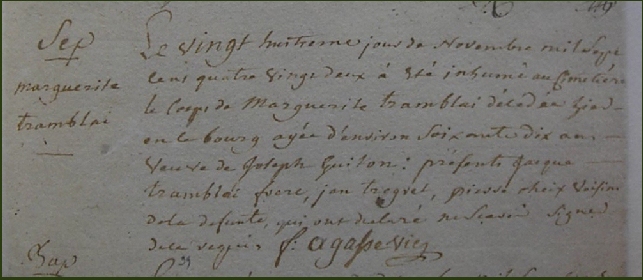 Sep
marguerite
tramblai
Le vingt huitieme jour de Novembre mil Sept
cens quatre vingt deux à été inhumé au Cimetiere
le Corps de Marguerite tramblai décédée hier
en le bourg agée d'environ Soixante dix ans
Veuve de Joseph Guiton: présents Jacque
tramblai frere, jan pierre Voisins
de la defunte, qui ont declaré ne Scavoir Signer
de ce requis f. agasse
Bap